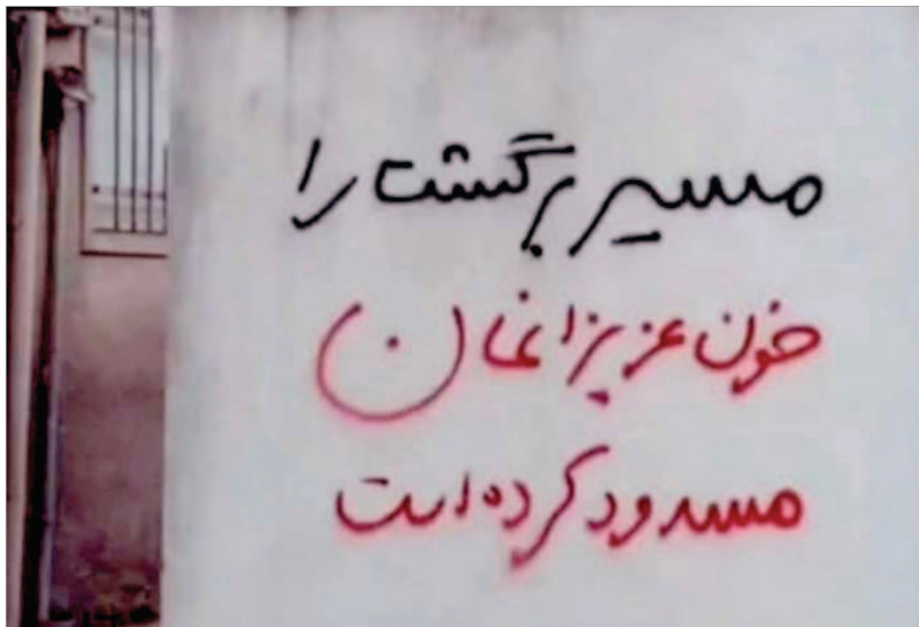 مسیر برگشت را
خون عزیزانمان
مسدود کرده است